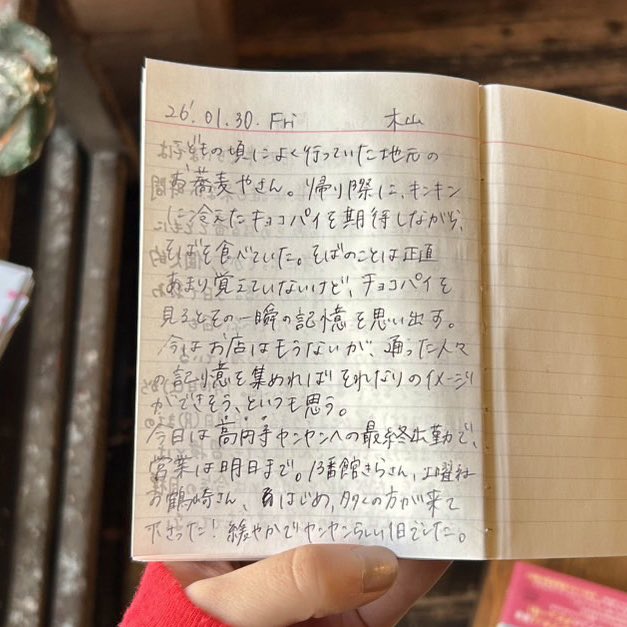 26'.01.30. Fri 木山
子どもの頃によく行っていた地元の
お蕎麦やさん。帰り際に、キンキン
に冷えたチョコパイを期待しながら、
そばを食べていた。そばのことは正直
あまり覚えていないけど、チョコパイを
見るとその一瞬の記憶を思い出す。
今はお店はもうないが、通った人々
の記憶を集めればそれなりのイメージ
ができそう、といつも思う。
今日は高円寺ヤンヤンへの最終出勤で、
営業は明日まで。13番館きらさん、土曜社
の鶴崎さん、をはじめ、多くの方が来て
下さった! 緩やかでヤンヤンらしい1日でした。